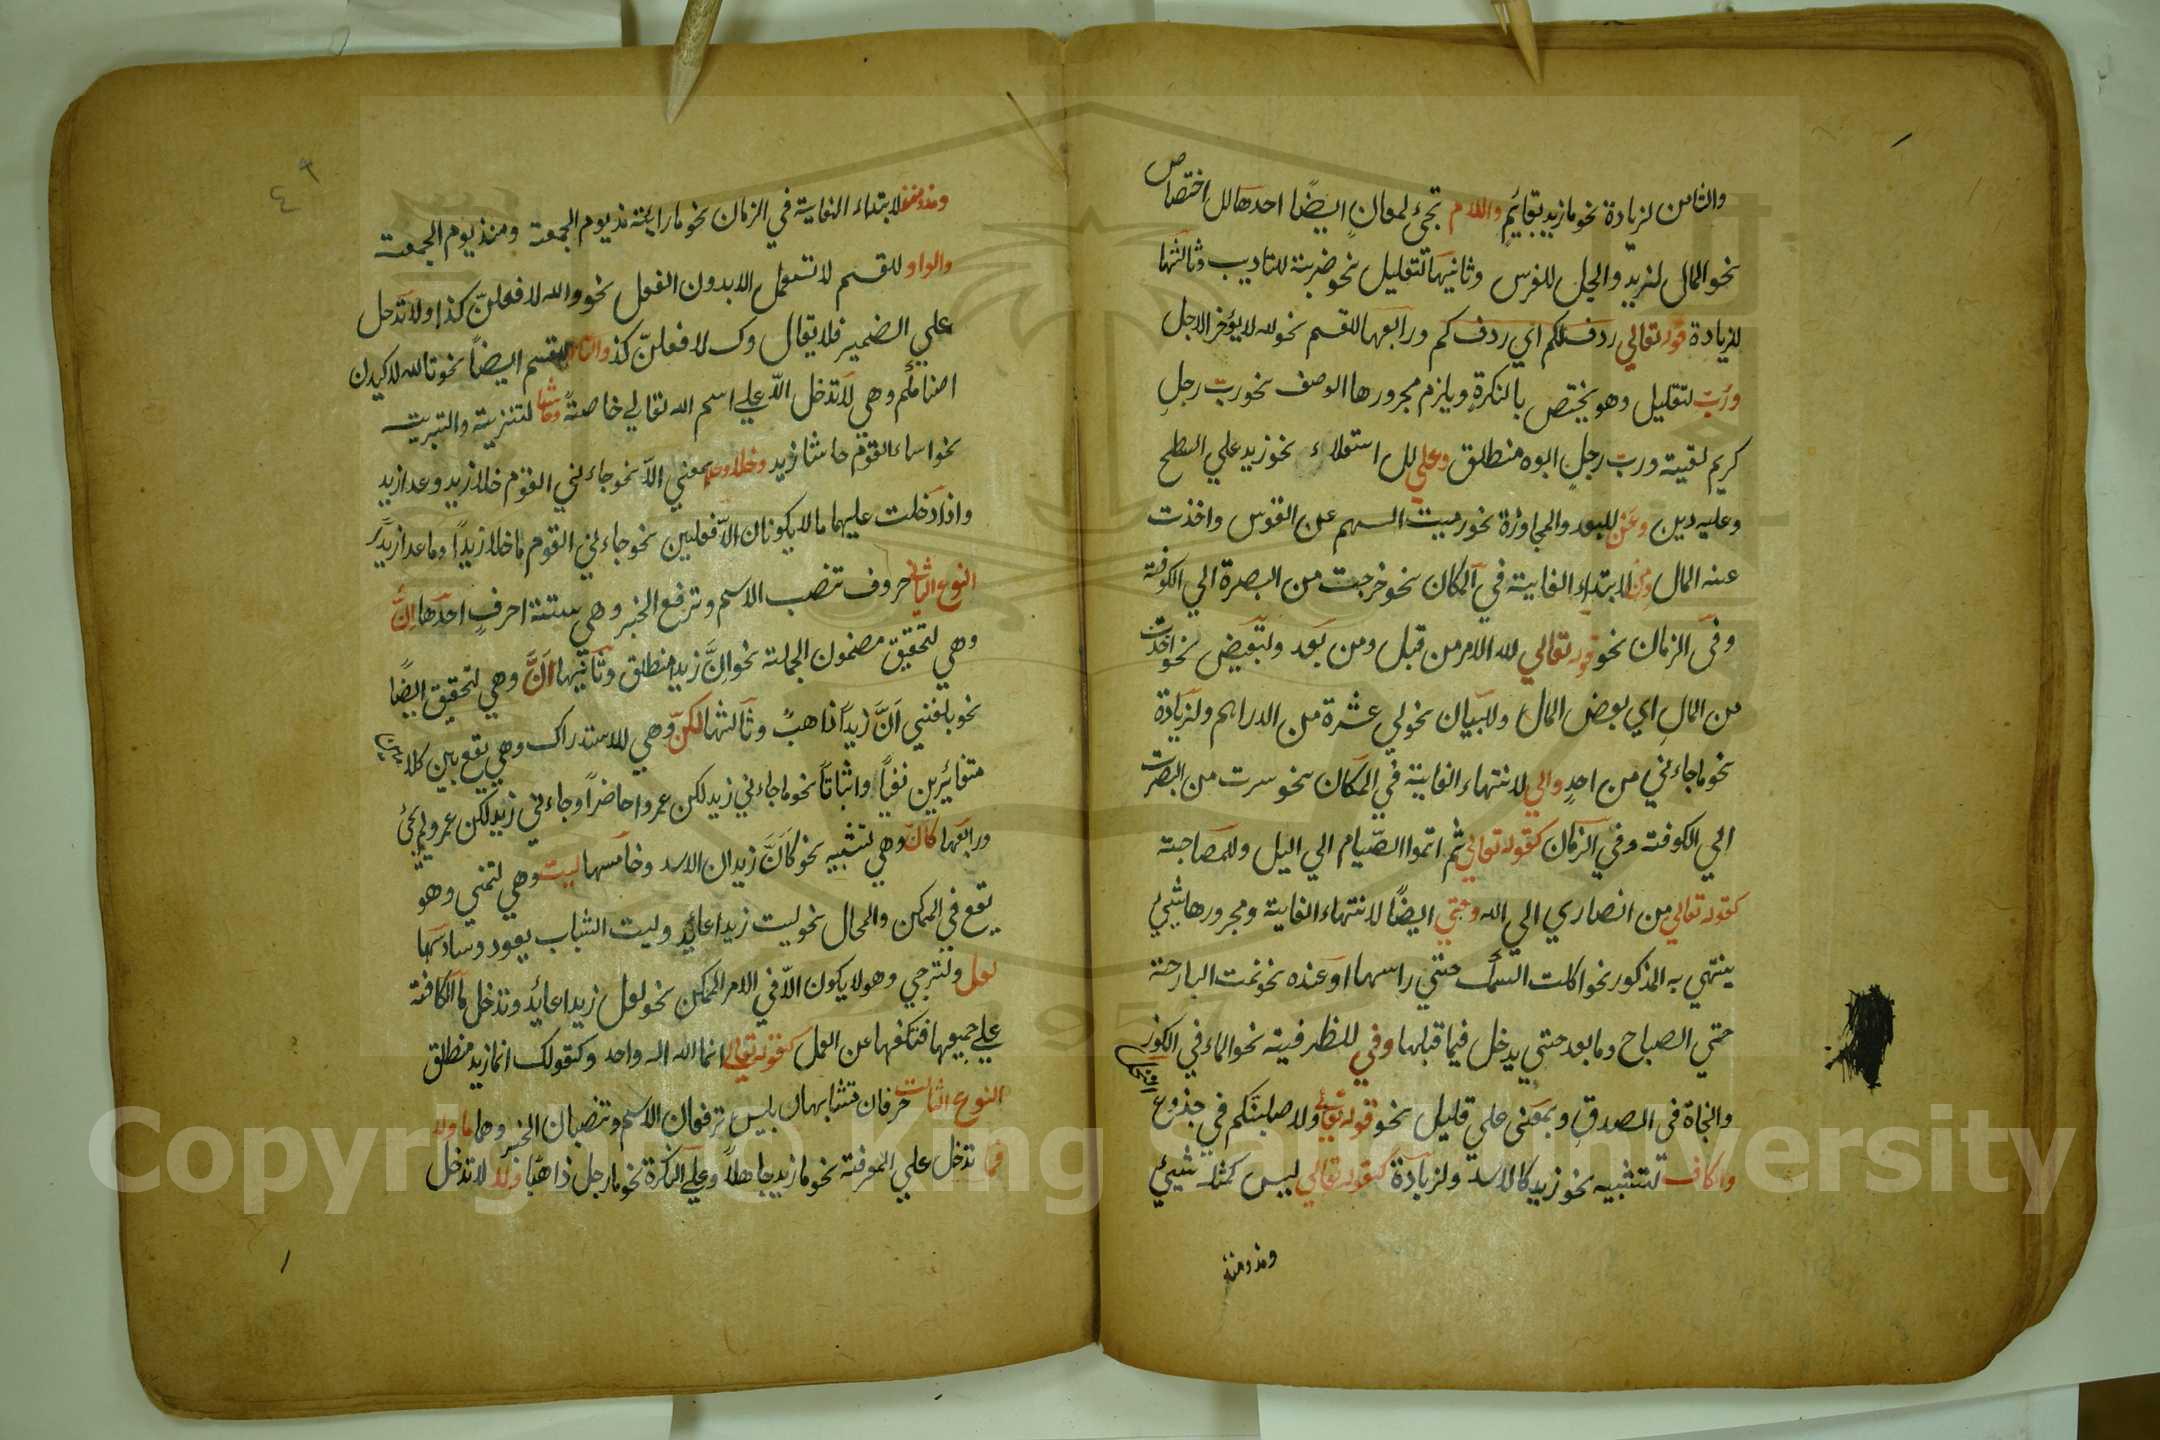 والثامن لزيادة نحو ما زيد بقائمٍ واللام تجئ لمعانٍ ايضًا احدها لل اختصاص
نحو المال لزيد والجل للفرس وثانيها لتعليل نحو ضربته للتاديب وثالثها
لزيادة قوله تعالي ردف لكم اي ردف كم ورابعها للقسم نحو لله لا يؤخر الاجل
ورُبّ لتقليل وهو يختص بالنكرةٍ ويلزم مجرورها الوصف نحو رب رجلٍ
كريم لقيته ورب رجلٍ ابوه منطلق وعلي لل استعلاء نحو زيد علي السطح
وعليه دين وعَنْ للبعد والمجاوزة نحو رميت السهم عن القوس واخذت
عنه المال ومِنْ لابتداء الغاية في المكان نحو خرجت من البصرة الي الكوفة
وفي الزمان نحو قوله تعالي لله الامر من قبل ومن بعد ولتبعيض نحو اخذت
من المالِ اي بعض المال وللبيان نحو لي عشرة من الدراهم ولزيادة
نحو ما جاءني من احدٍ والي لانتهاء الغاية في المكان نحو سرت من البصرت
الي الكوفة وفي الزمان كقوله تعالي ثم اتموا الصّيام الي اليل وللمصاحبة
كقوله تعالي من انصاري الي الله وحتي ايضًا لانتهاء الغاية ومجرورها شيئ
ينتهي به المذكور نحو اكلت السمك حتي راسها او عنده نحو نمت البارحة
حتي الصباح وما بعد حتي يدخل فيما قبلها وفي للظرفية نحو الماء في الكوز
والنجاة في الصدق وبمعنى علي قليل نحو قوله تعالي ولاصلبنّكم في جذوع النخل
والكاف لتشبيه نحو زيد كالاسد ولزيادة كقوله تعالي ليس كمثله شيئ
ومذ ومنذ
٤٩
ومذ ومنذ لابتداء الغاية في الزمان نحو ما رايته مذ يوم الجمعة ومنذ يوم الجمعة
والواو للقسم لا تستعمل الا بدون الفعل نحو والله لافعلنّ كذا ولا تدخل
علي الضمير فلا يقال وك لافعلنّ كذا والتاء للقسم ايضاً نحو تالله لاكيدن
اصنامكم وهي لا تدخل الّا علي اسم الله تعالي خاصةً وحاشا لتنزيه والتبريت
نحو اساء القوم حاشا زيد وخلا وعدا بمعني الّا نحو جاءني القوم خلا زيد وعدا زيد
واذا دخلت عليهما ما لا يكونان الّا فعلين نحو جاءني القوم ما خلا زيداً وما عدا زيداً
النوع الثاني حروف تنصب الاسم وترفع الخبر وهي ستة احرفٍ احدها اِنَّ
وهي لتحقيق مضمون الجملة نحو اِنَّ زيدا منطلق وثانيها اَنَّ وهي لتحقيق ايضًا
نحو بلغني اَنَّ زيداً ذاهبٌ وثالثها لكنّ وهي للاستدراك وهي يقع بين كلامين
متغائيرين نفياً واثباتاً نحو ما جاءني زيد لكن عمروا حاضراً وجاءني زيد لكن عمرو لم يجئ
ورابعها كانّ وهي لتشبيه نحو كَاَنَّ زيدان الاسد وخامسها ليت وهي لتمني وهو
يقع في الممكن والمحال نحو ليت زيدا عايد وليت الشباب يعود وسادسها
لعل ولترجي وهو لا يكون الّا في الامر الممكن نحو لعل زيدا عايد وتدخل ما الكافة
علي جميعها فتكفها عن العمل كقوله تعالي انما الله اله واحد وكقولك انما زيد منطلق
النوع الثالث حرفان متشابهان بليس ترفعان الاسم وتنصبان الخبر وهما ما ولا
فما تدخل علي المعرفة نحو ما زيد جاهلاً وعلي النكرة نحو ما رجل ذاهبًا ولا لا تدخل
Copyright © King Saud University